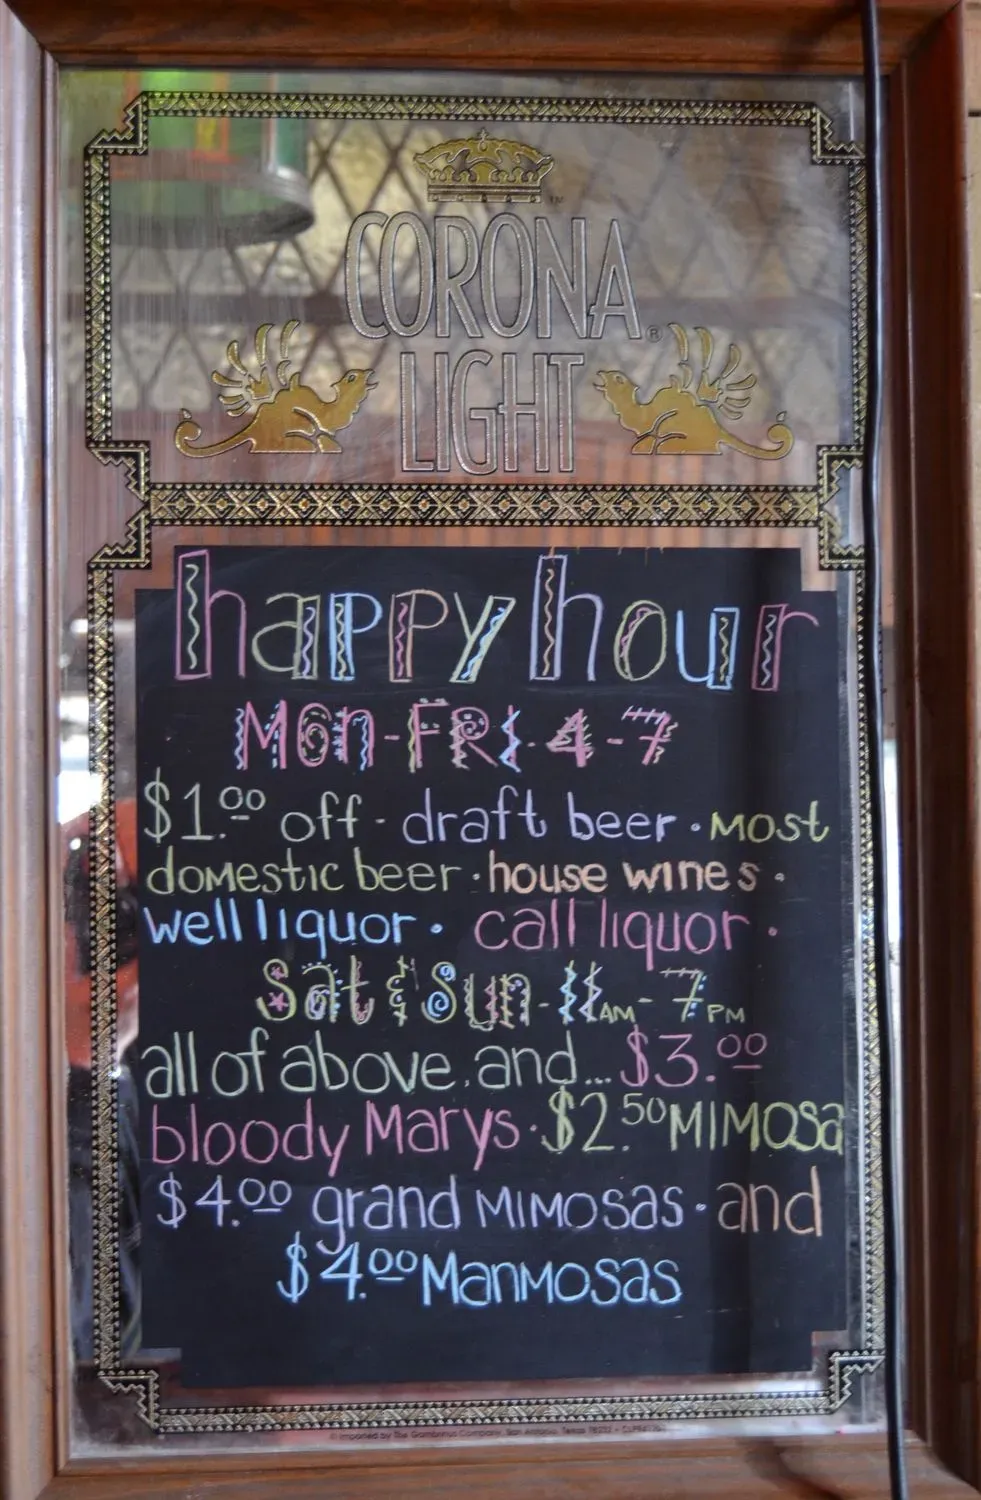 CORONA
LIGHT
happy hour
MON-FRI-4-7
$1.00 off - draft beer · Most
domestic beer · house wines ·
well liquor · call liquor ·
Sat & Sun - 11AM - 7PM
all of above, and... $3.00
bloody Marys · $2.50 MIMOSA
$4.00 grand MIMOSAS · and
$4.00 ManMosas
© Imported by The Gambrinus Company, San Antonio, Texas 78232